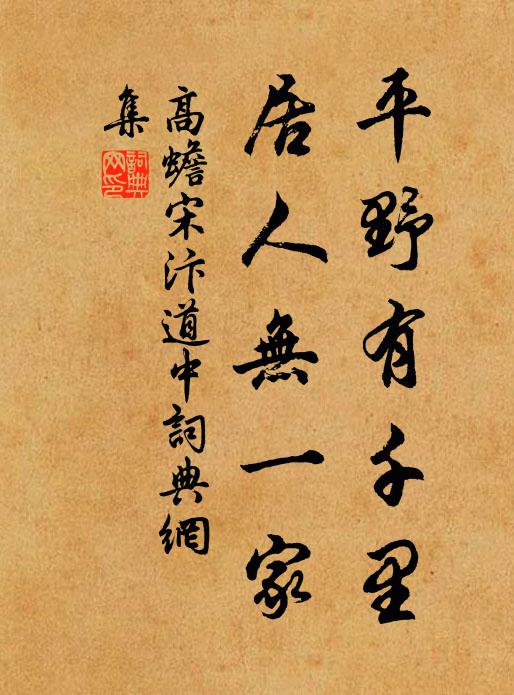 平野有千里
居人無一家
高蟾宋汴道中詞典網
集
詞典
网印